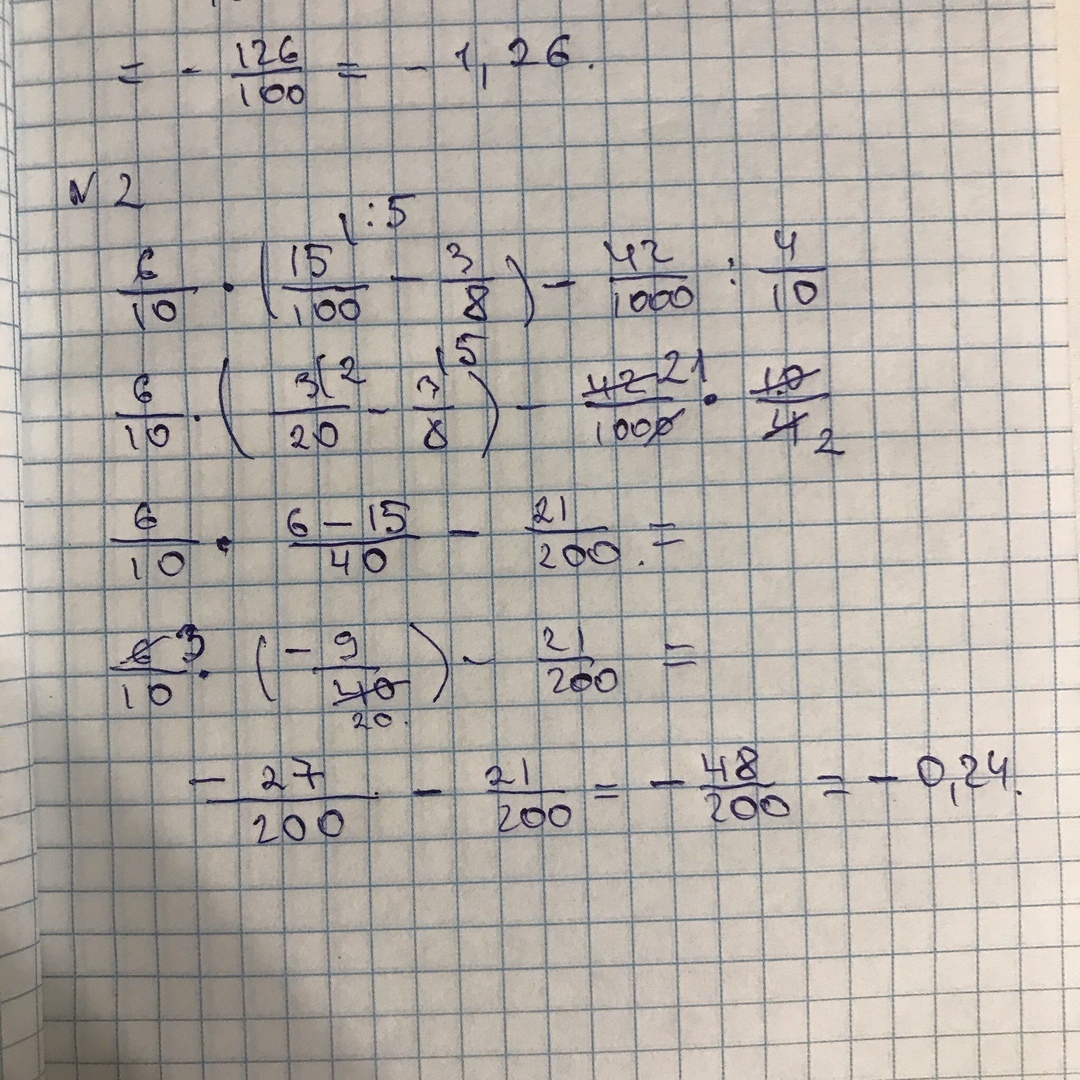 = - 126/100 = - 1,26.
№ 2
6/10 · (15/100 (:5 - 3/8) - 42/1000 : 4/10
6/10 · (3(2/20 - 3(5/8) - 42 21/1000 · 10/4 2
6/10 · 6-15/40 - 21/200. =
6 3/10 · (-9/40 20.) - 21/200 =
- 27/200 - 21/200 = - 48/200 = - 0,24.